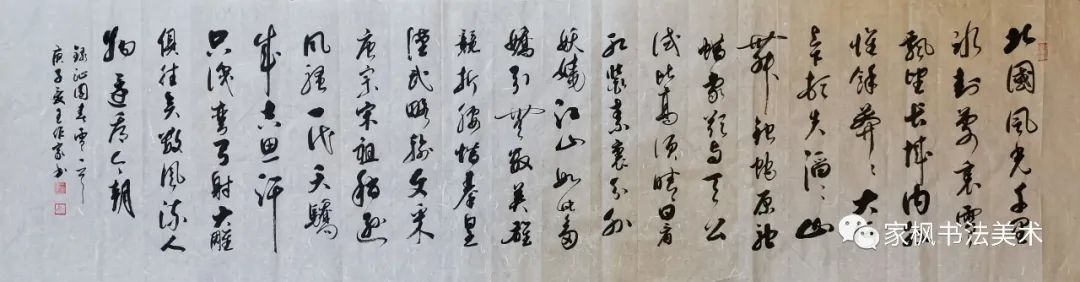 北國風光千里
冰封萬里雪
飄望長城内外
惟餘莽々大河
上下頓失滔々山
舞銀蛇原馳
蜡象欲与天公
試比高須晴日看
紅裝素裹分外
妖嬈江山如此多
嬌引無數英雄
競折腰惜秦皇
漢武略輸文采
唐宗宋祖稍遜
風騷一代天驕
成吉思汗
只識彎弓射大雕
俱往矣數風流人
物還看今朝
錄沁園春雪一首
庚子夏王作家书
家枫书法美术